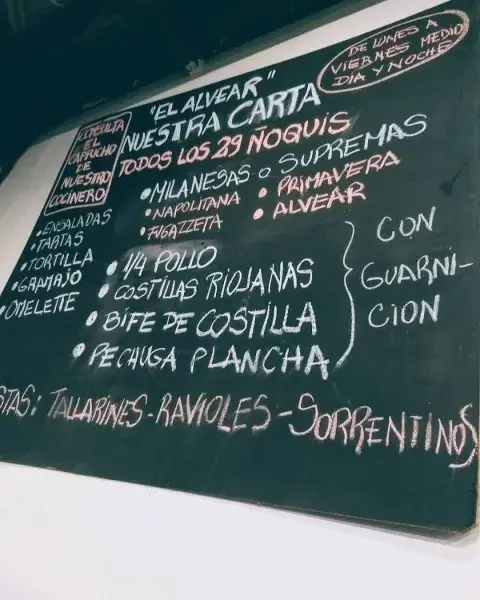 DE LUNES A
VIERNES MEDIO
DIA Y NOCHE
"EL ALVEAR"
NUESTRA CARTA
TODOS LOS 29 ÑOQUIS
CONSULTA
EL
CAPRICHO
DE
NUESTRO
COCINERO
• MILANESAS O SUPREMAS
• NAPOLITANA • PRIMAVERA
• FUGAZZETA • ALVEAR
• ENSALADAS
• TARTAS
• TORTILLA
• GRAMAJO
• OMELETTE
• 1/4 POLLO
• COSTILLAS RIOJANAS
• BIFE DE COSTILLA
• PECHUGA PLANCHA
CON
GUARNI-
CION
STAS: TALLARINES - RAVIOLES - SORRENTINOS